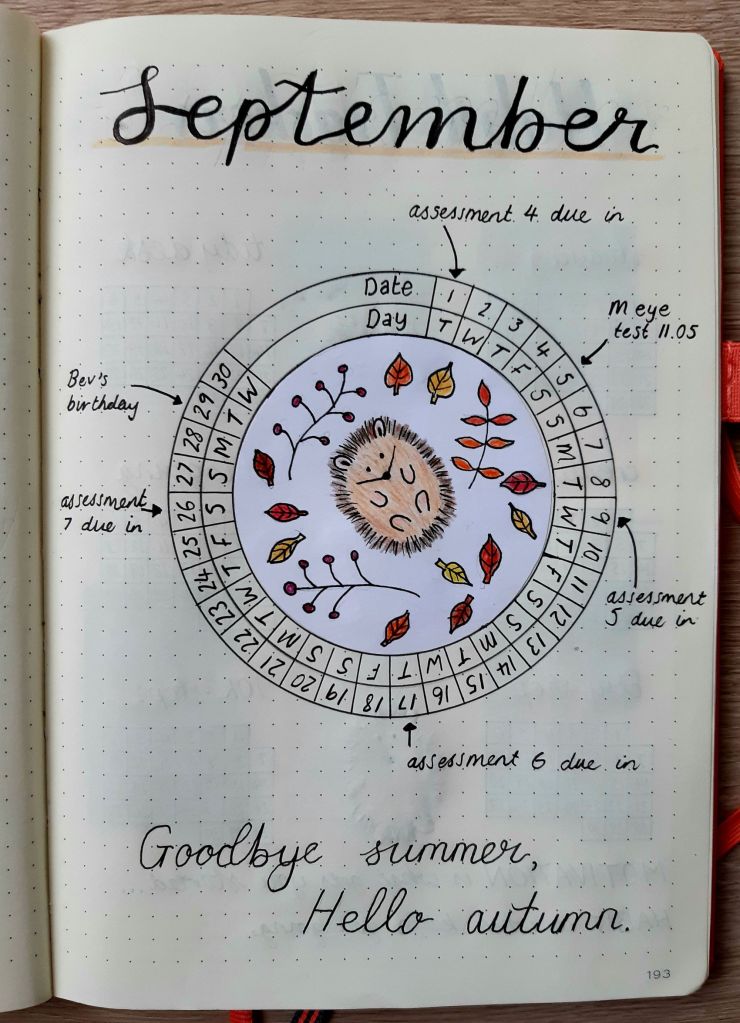 September
assessment 4 due in
Date 1 2 3 4 5 6 7 8 9 10 11 12 13 14 15 16 17 18 19 20 21 22 23 24 25 26 27 28 29 30
Day T W T F S S M T W T F S S M T W T F S S M T W T F S S M T W
M eye
test 11.05
Bev's
birthday
assessment
7 due in
assessment
5 due in
assessment 6 due in
Goodbye summer,
Hello autumn.
193